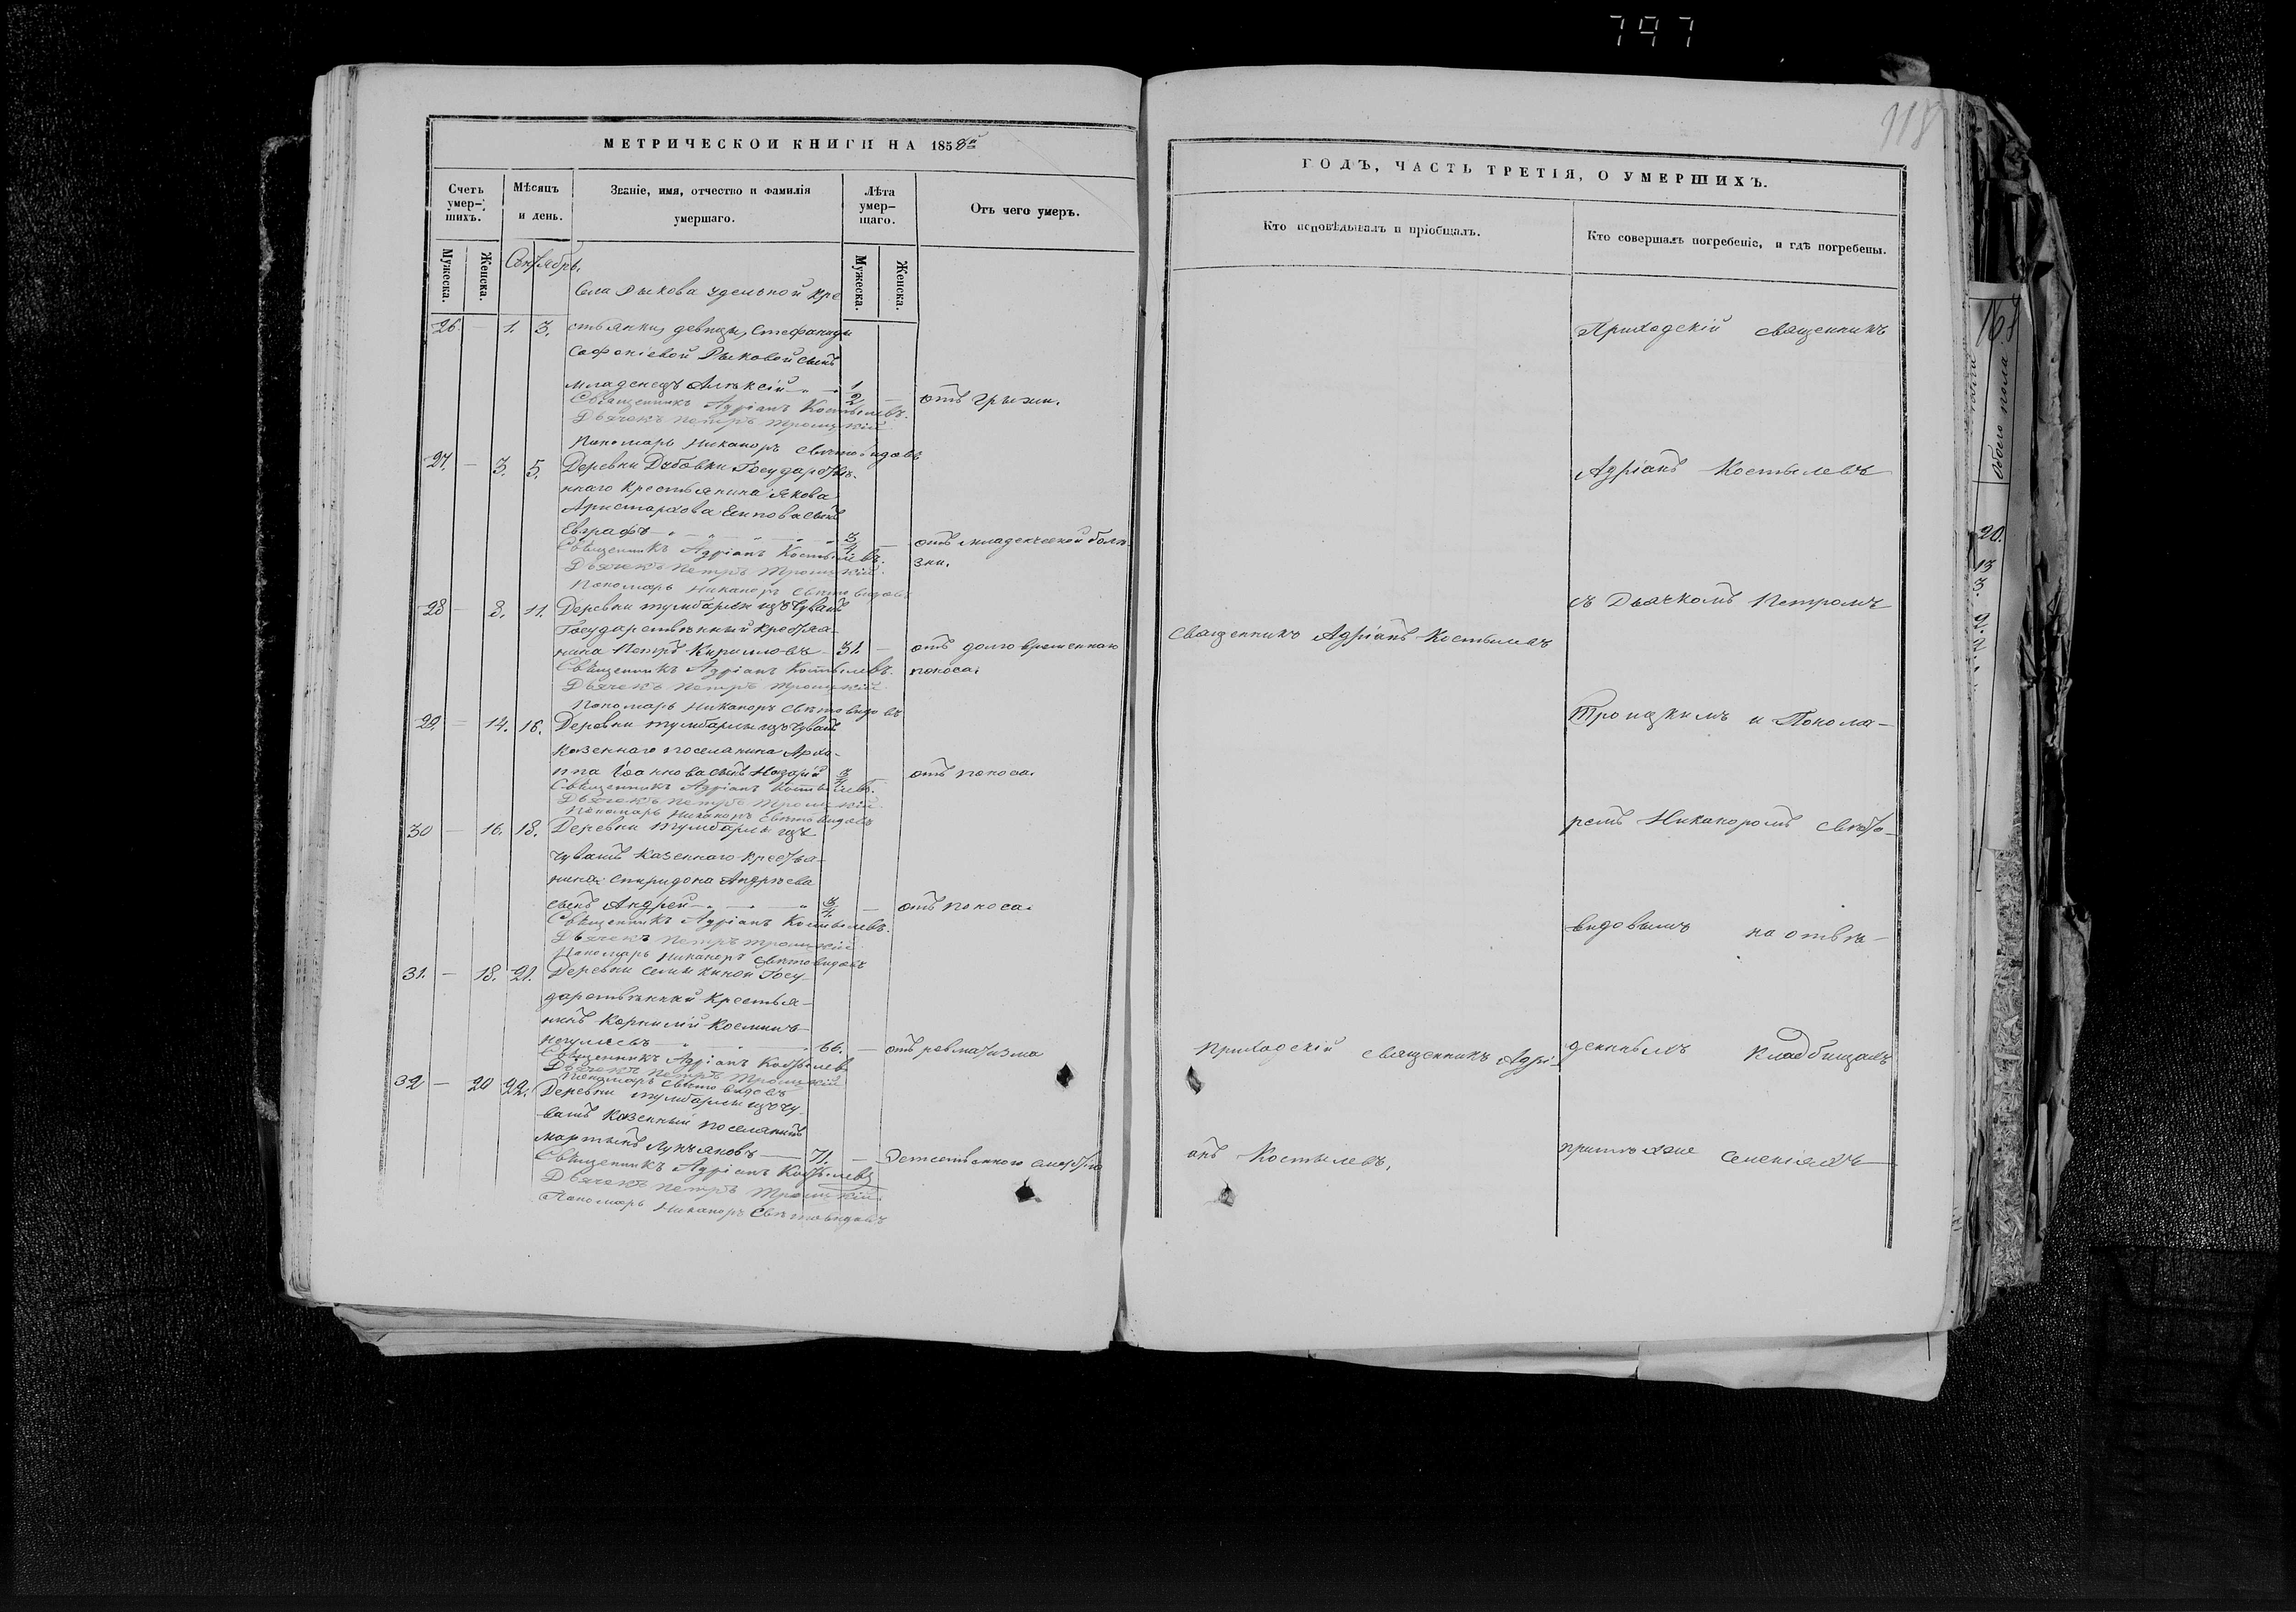 797
118
МЕТРИЧЕСКОЙ КНИГИ НА 1858й
Счетъ умер-шихъ.
Мѣсяцъ и день.
Званіе, имя, отчество и фамилія умершаго.
Лѣта умер-шаго.
Отъ чего умеръ.
Мужеска.
Женска.
Мужеска.
Женска.
Сентябрь.
Села Рыкова удельной кре
26 — 1. 3. стьянки, девицы, Стефаниды
Софоніевой Рыковой сынъ
младенецъ Алексій 1/2 — отъ грыжи.
Священникъ Адріанъ Костылевъ.
Дьячекъ Петръ Троицкій
Пономарь Никаноръ Свѣтовидовъ
27. — 3. 5. Деревни Дубовки Государстве-
ннаго крестьянина Якова
Аристархова сынъ
Евграфъ 3/4 — отъ младенческой болѣ-
зни.
Священникъ Адріанъ Костылевъ.
Дьячекъ Петръ Троицкій.
Пономарь Никаноръ Свѣтовидовъ
28 — 8. 11. Деревни Тумбарли изъ Чувашъ
Государственный крестья-
нина Петръ Кирилловъ 31. — отъ долговременнаго
поноса.
Священникъ Адріанъ Костылевъ.
Дьячекъ Петръ Троицкій
Пономарь Никаноръ Свѣтовидовъ
29. — 14. 16. Деревни Тумбарлы изъ Чувашъ
казеннаго поселянина Архи-
ппа Іоаннова сынъ Назарій 3/4 — отъ поноса.
Священникъ Адріанъ Костылевъ.
Дьячекъ Петръ Троицкій.
Пономарь Никаноръ Свѣтовидовъ
30 — 16. 18. Деревни Тумбарлы изъ
чувашъ казеннаго крестья-
нина Спиридона Андреева
сынъ Андрей 3/4. — отъ поноса.
Священникъ Адріанъ Костылевъ.
Дьячекъ Петръ Троицкій
Пономарь Никаноръ Свѣтовидовъ
31. — 18. 21. Деревни Семыкиной Госу-
дарственный крестья-
нинъ Корнилій Косминъ
66. — отъ ревматизма
Священникъ Адріанъ Костылевъ
Дьячекъ Петръ Троицкій
Пономарь Свѣтовидовъ
32 — 20 22. Деревни Тумбарлы изъ чу-
вашъ казенный поселянинъ
Мартынъ Лукьяновъ 71. — Естественною смертію
Священникъ Адріанъ Костылевъ
Дьячекъ Петръ Троицкій.
Пономарь Никаноръ Свѣтовидовъ
ГОДЪ, ЧАСТЬ ТРЕТІЯ, О УМЕРШИХЪ.
Кто исповѣдывалъ и пріобщалъ.
Кто совершалъ погребеніе, и гдѣ погребены.
Священникъ Адріанъ Костылевъ
Приходскій священникъ Адрі-
анъ Костылевъ.
Приходскій священникъ
Адріанъ Костылевъ
съ Дьячкомъ Петромъ
Троицкимъ и Понома-
ремъ Никаноромъ Свѣто-
видовымъ на отве-
денныхъ кладбищахъ
при селеніяхъ
обоего пола.
20.
13
3